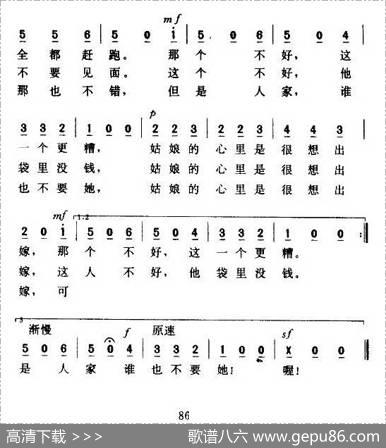 mf
5 5 6 | 5 0 i | 5 0 6 | 5 0 4 |
全 都 赶 跑。 那 个 不 好, 这
不 要 见 面。 这 个 不 好, 他
那 也 不 错, 但 是 人 家, 谁
p
3 3 2 | 1 0 0 | 2 2 3 | 2 2 3 | 4 4 3 |
一 个 更 糟, 姑 娘 的 心 里 是 很 想 出
袋 里 没 钱, 姑 娘 的 心 里 是 很 想 出
也 不 要 她, 姑 娘 的 心 里 是 很 想 出
mf 1.2
2 0 i | 5 0 6 | 5 0 4 | 3 3 2 | 1 0 0 :‖
嫁, 那 个 不 好, 这 一 个 更 糟。
嫁, 这 人 不 好, 他 袋 里 没 钱。
嫁, 可
3
渐慢 f 原速 sf
5 0 6 | 5 0 4 | 3 3 2 | 1 0 0 | x 0 0 ‖
是 人 家 谁 也 不 要 她! 喔!
86
高清下载 >>> 歌谱八六 www.gepu86.com